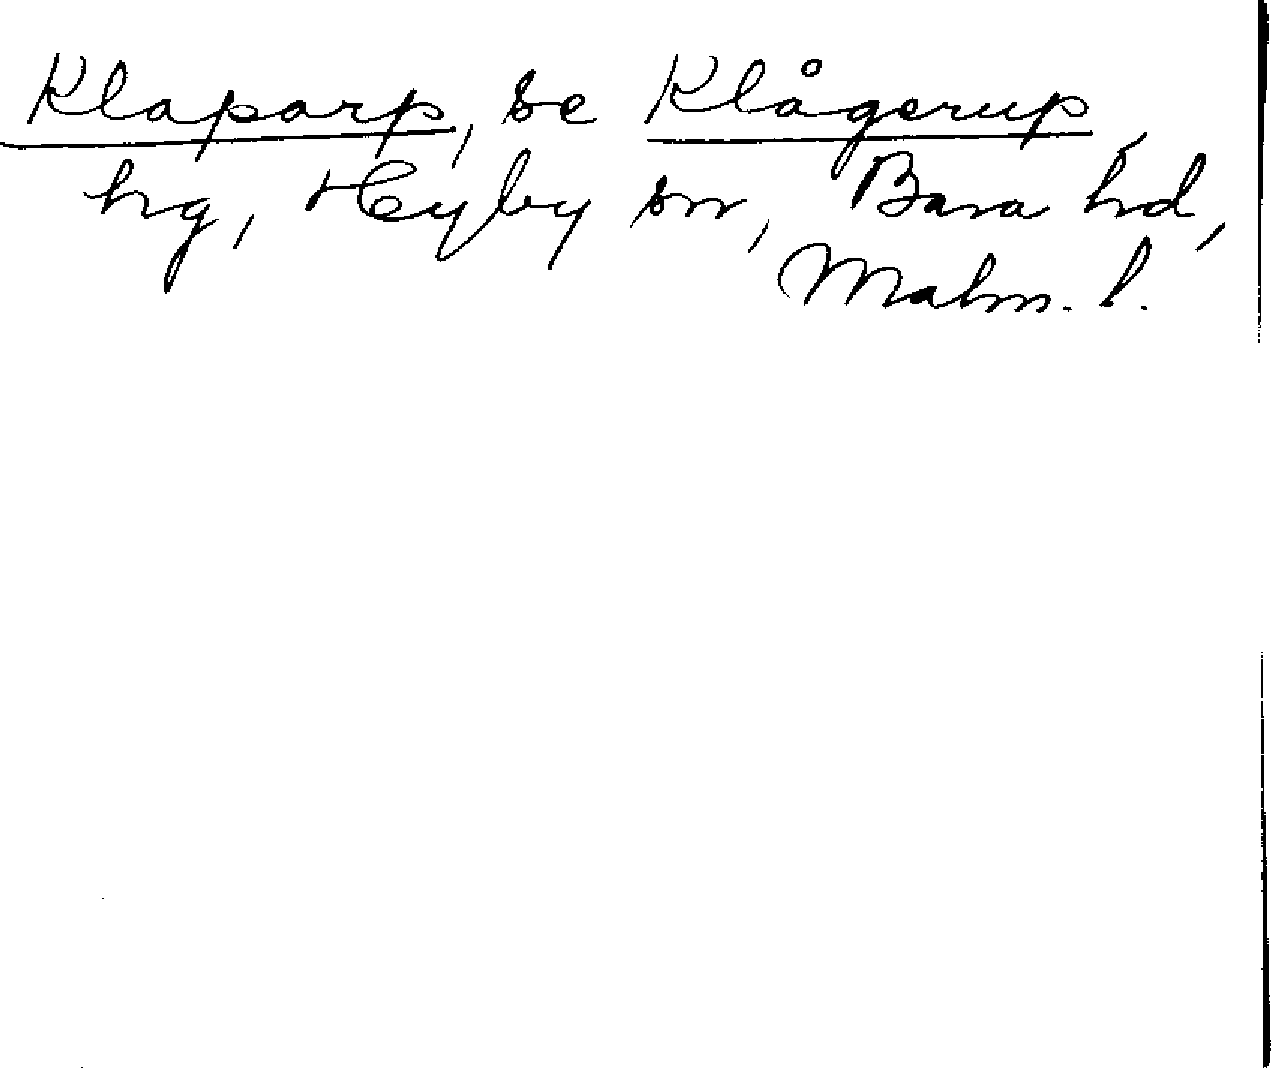 Klaparp, se Klågerup,
hg, Hyby sn, Bara hd,
Malm. l.